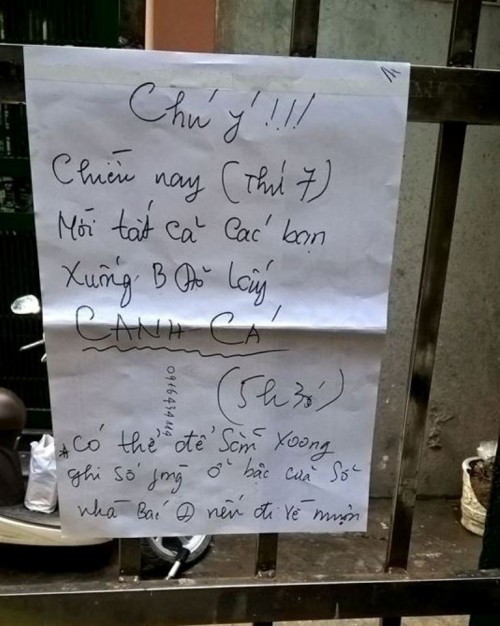 Chú ý!!!
Chiều nay (Thứ 7)
Mời tất cả các bạn
Xuống B lấy
CANH CÁ
(5h30)
*Có thể để Sẵn Xoong
ghi số ở bậc cửa Sổ
nhà Bác nếu đi về muộn